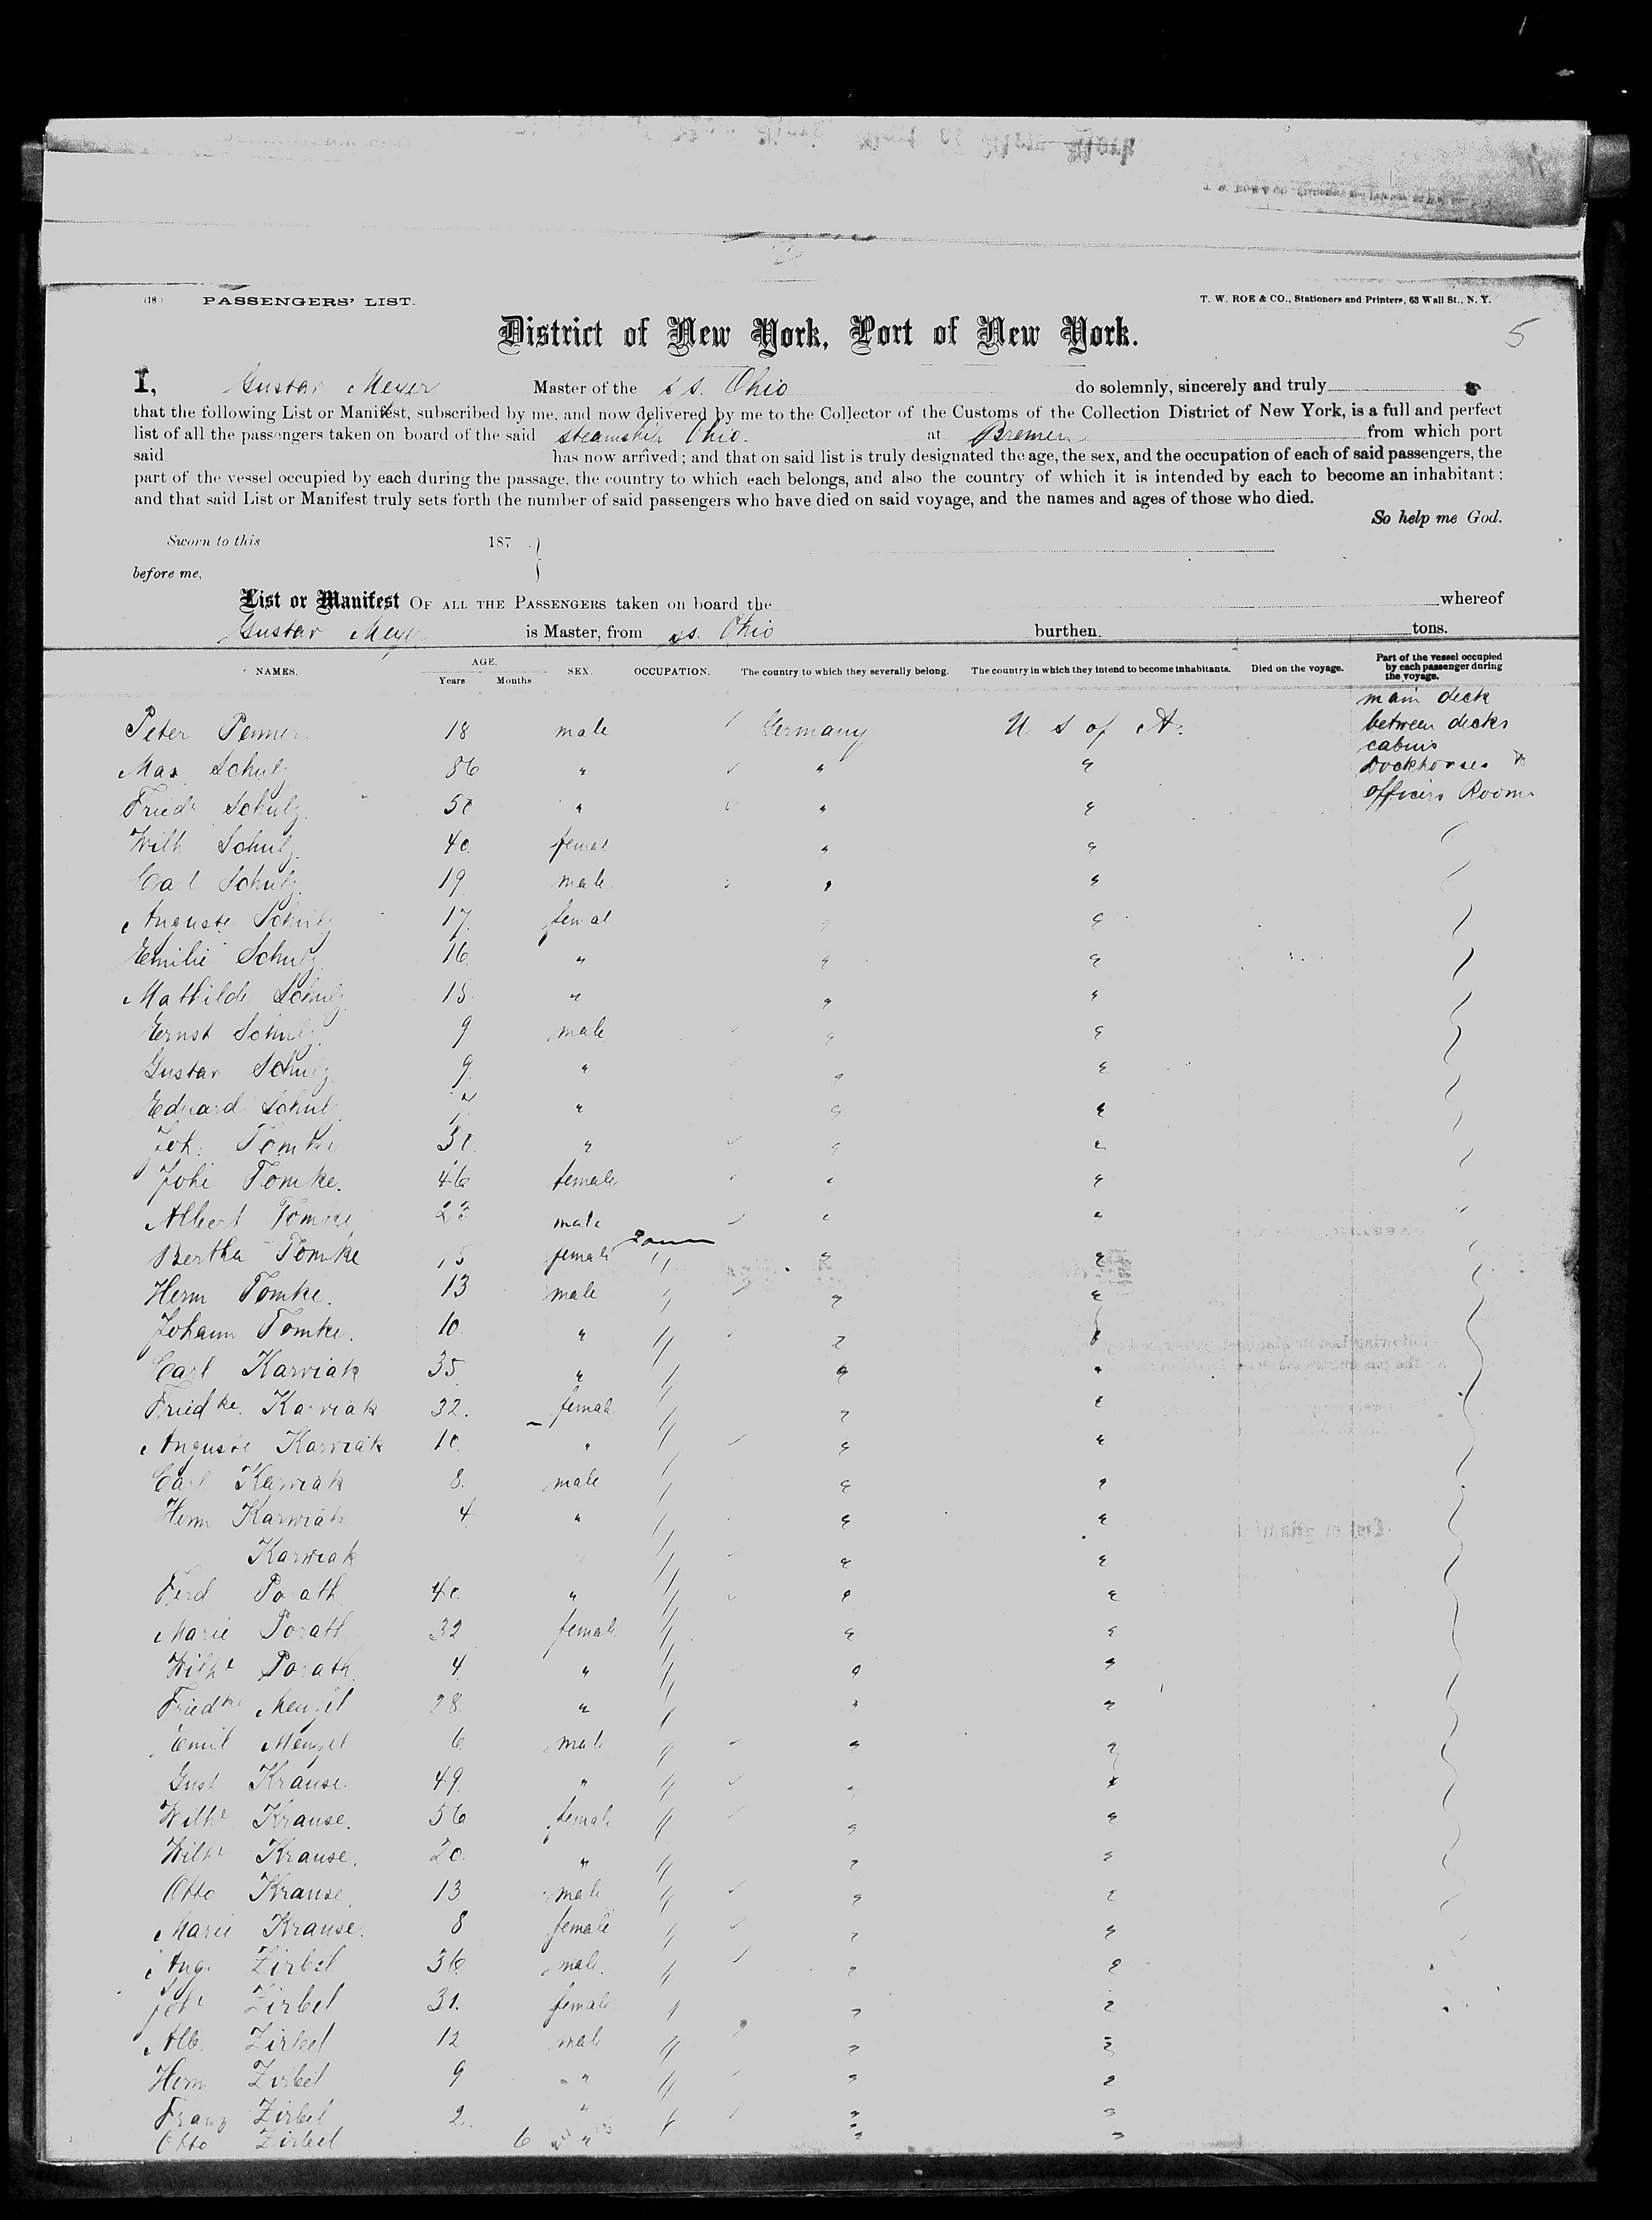 (18) PASSENGERS' LIST. T. W. ROE & CO., Stationers and Printers, 63 Wall St., N. Y.
District of New York, Port of New York. 5
I, Gustav Meyer Master of the s s. Ohio do solemnly, sincerely and truly
that the following List or Manifest, subscribed by me, and now delivered by me to the Collector of the Customs of the Collection District of New York, is a full and perfect
list of all the passengers taken on board of the said steamship Ohio. at Bremen from which port
said has now arrived ; and that on said list is truly designated the age, the sex, and the occupation of each of said passengers, the
part of the vessel occupied by each during the passage, the country to which each belongs, and also the country of which it is intended by each to become an inhabitant ;
and that said List or Manifest truly sets forth the number of said passengers who have died on said voyage, and the names and ages of those who died.
So help me God.
Sworn to this 187
before me,
List or Manifest OF ALL THE PASSENGERS taken on board the whereof
Gustav Meyer is Master, from ss. Ohio burthen. tons.
NAMES. AGE. Years Months SEX. OCCUPATION. The country to which they severally belong. The country in which they intend to become inhabitants. Died on the voyage. Part of the vessel occupied by each passenger during the voyage.
main deck
Peter Penner 18 male Germany U S of A. between decks
cabins
Max Schulz 86 " " " Dockhouses &
Friedr Schulz 50 " " " officers Rooms
Wilh Schulz 40 femal " "
Carl Schulz 19 male " "
Auguste Schulz 17 femal " "
Emilie Schulz 16 " " "
Mathilde Schulz 15 " " "
Ernst Schulz 9 male " "
Gustav Schulz 9 " " "
Eduard Schulz 7 " " "
Joh. Tomke " " "
Johe Tomke. 46 female " "
Albert Tomke 23 male " "
Bertha Tomke 15 female " " "
Herm Tomke. 13 male " " "
Johann Tomke. 10 " " " "
Carl Karviak 35 " " " "
Friedke. Karviak 32. female " " "
Auguste Karviak 10. " " " "
Carl Karviak 8. male " " "
Herm Karviak 4 " " " "
Karviak " " "
Ferd Porath 40 " " " "
Marie Porath 32 female " " "
Wilhe Porath 4 " " " "
Friedke Menzel 28 " " " "
Emil Menzel 6 male " " "
Gust Krause 49. " " " "
Wilhe Krause. 56 female " " "
Wilhe Krause. 20. " " " "
Otto Krause 13 male " " "
Marie Krause. 8 female " " "
Aug. Zirbel 36 male. " " "
Johe Zirbel 31. female " " "
Alb. Zirbel 12 male " " "
Herm Zirbel 9 " " " "
Franz Zirbel 2. " " " "
Otto Zirbel 6 " " "